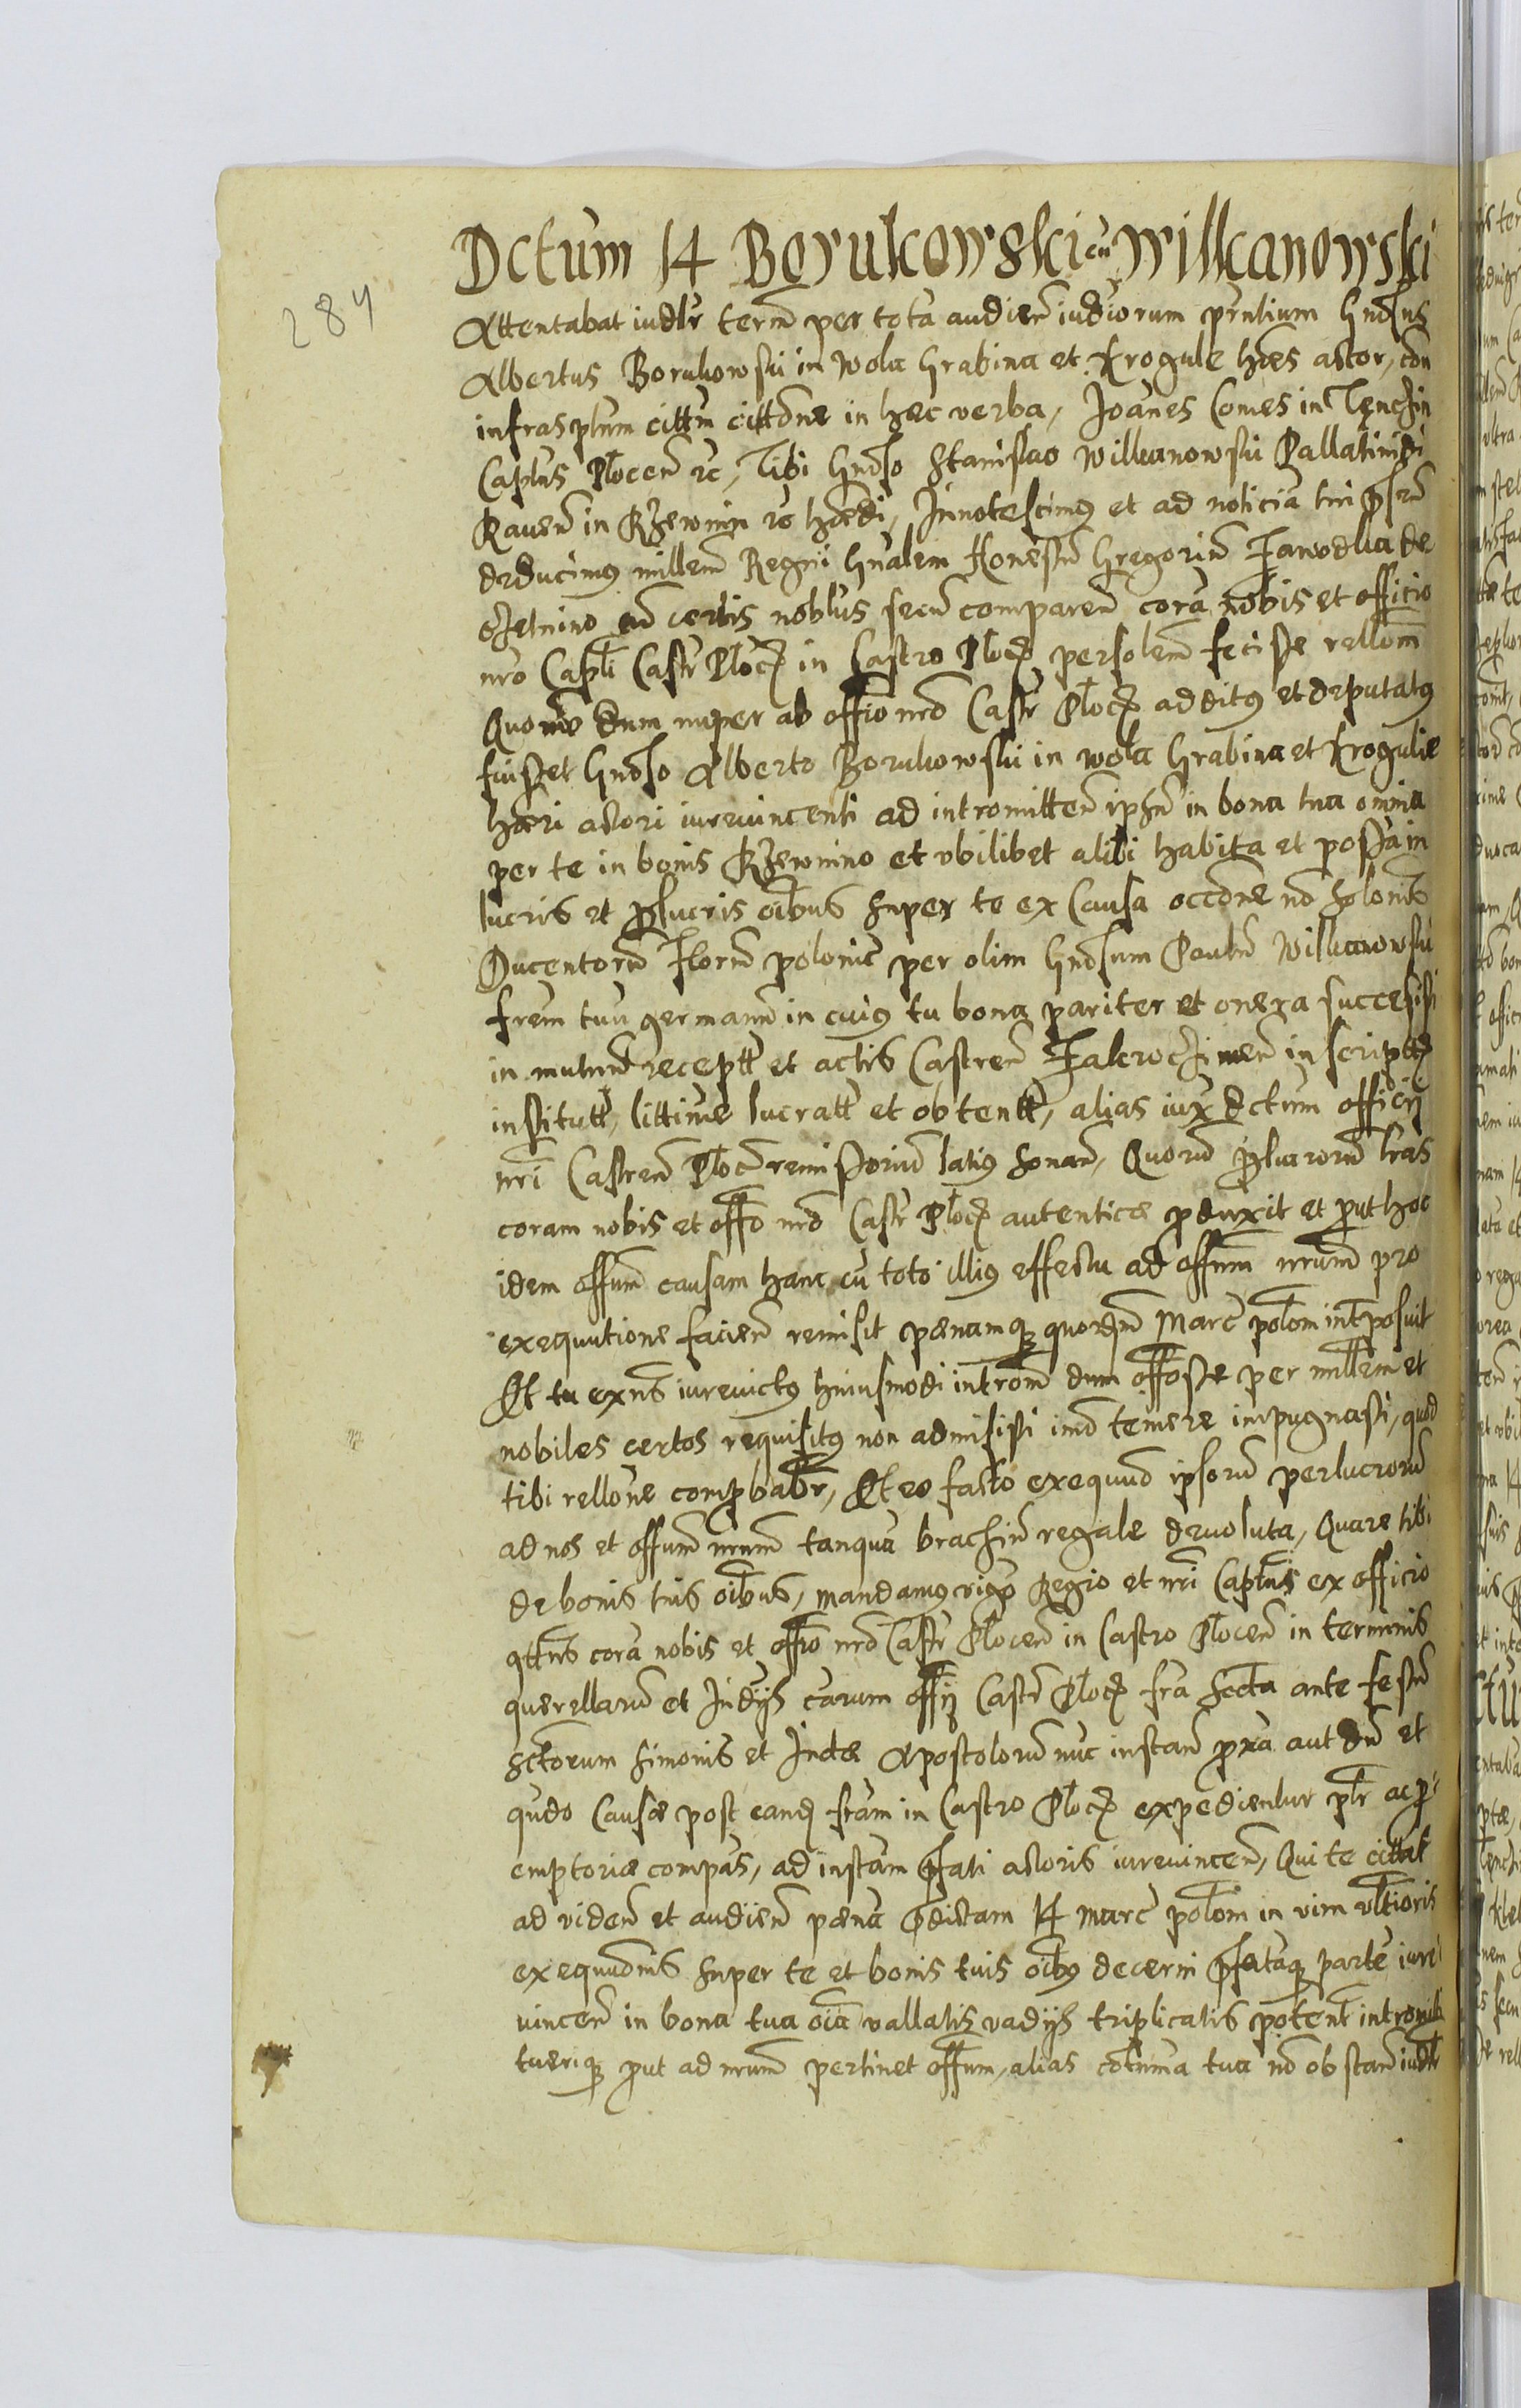 284
Dctum 14 Borukowski cu Wilkanowski
Attentabat iudlr termi per tota audien iudiciorum prntium Gnosus
Albertus Borukowski in Wola Grabina et Krogule hæs actor, con
infrasplnm cittm cittone in hæc verba, Joanes Comes in Tenczin
Caplus Plocen rc, Tibi Gnoso Stanislao Wilkanowski Pallatinidi
Raven in Rzewnin rc hædi, Innotescimus et ad noticia tui psen
deducimus millem Regni Gnalem Honestu Gregoriu Zawodka de
cu certis noblus secu comparen cora nobis et officio
nro Capli Castr Ploc in Castro Ploc persolem fecisse rellom
Quomo dum nuper ab offio nro Castr Ploc additus et deputatus
fuisset Gnoso Alberto Borukowski in Wola Grabina et Krogulie
hæri actori iurevincenti ad intromitten ipsu in bona tua omnia
per te in bonis Rzewnino et ubilibet alibi habita et possa in
lucris et plucris oibus super te ex Causa occone no solonis
Ducentoru floru polonic per olim Gnosum Paulu Wilkanowski
frem tuu germanu in cuius tu bona pariter et onera successisti
in mutuu receptt et actis Castren Zakroczimen inscript
institutt, littime lucratt et obtentt, alias iux dctum officij
nri Castren Plocen remissoriu latius sonan, Quoru plucroru lras
coram nobis et offo nro Castr Ploc autentice pduxit et put hoc
idem offum causam hanc cu toto illius effectu ad offum nrum pro
exequutione facien remisit pænamq quordm Marc polom intposuit
Et tu exns iurevictus huiusmodi introm dum offosse per millem et
nobiles certos requisitus non admisisti imo temere impugnasti, quod
tibi rellone compbabr, Et eo facto exequuo ipsoru perlucroru
ad nos et offum nrum tanqua brachiu regale devoluta, Quare tibi
de bonis tuis oibus, mandamus rigo Regio et nri Captus ex officio
qttns cora nobis et offio nro Castr Plocen in Castro Plocen in terminis
querellaru et Indijs earum offij Castr Ploc fra secta ante festu
sctorum Simonis et Iudæ Apostoloru nuc instan pxa aut du et
qudo Causæ post eand fram in Castro Ploc expedientur plr ac p
emptoriæ compas, ad instam pfati actoris iurevincen, Qui te cittat
ad viden et audien pæna pdictam 14 marc polom in vim ultioris
exequuonis super te et bonis tuis oibus decerni pfatamq parte iure
vincen in bona tua oia vallatis vadijs triplicatis potent intromitti
tuerique put ad nrum pertinet offum, alias cotuma tua no obstan iudlr